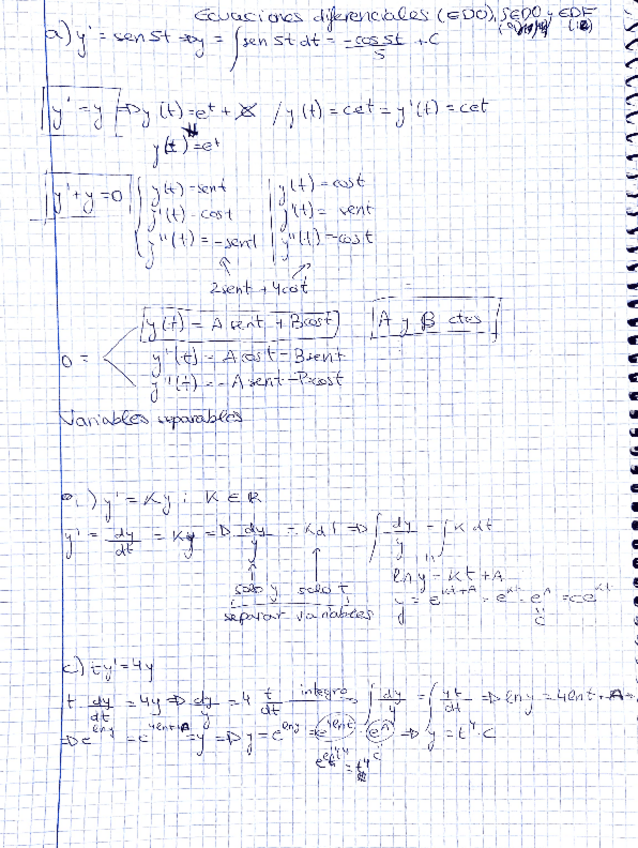 Ecuaciones diferenciales (EDO), SEDO y EDF
a) y' = sen 5t ⇒ y = ∫ sen 5t dt = -cos 5t / 5 + C
y' = y ⇒ y(t) = e^t + / y(t) = ce^t = y'(t) = cet
y(t) = e^t
y' + y = 0 { y(t) = sent | y(t) = cost
y'(t) = cost | y'(t) = sent
y''(t) = -sent | y''(t) = -cost
2sent + 4cost
y(t) = A sent + B cost A y B ctes
0 = y'(t) = A cost - B sent
y''(t) = -A sent - B cost
Variables separables
) y' = Ky ; K ∈ R
y' = dy/dt = Ky ⇒ dy/y = K dt ⇒ ∫ dy/y = ∫ K dt
ln y = Kt + A
solo y solo t y = e^{Kt+A} = e^{Kt} · e^A = ce^{Kt}
separar variables C
c) ty' = 4y
t dy/dt = 4y ⇒ dy/y = 4 t/dt integro ∫ dy/y = ∫ 4t/dt ⇒ ln y = 4 ln t + A =
⇒ e^{ln y} = e^{4 ln t + A} = y ⇒ y = e^{ln y} = e^{4 ln t} · e^A ⇒ y = t^4 · C
e^{ln t^4} = t^4 C